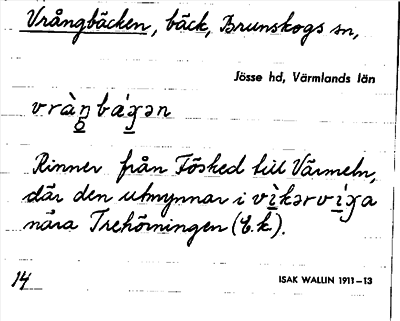 Vrångbäcken, bäck, Brunskogs sn,
Jösse hd, Värmlands län
vràŋ̥bæ̀ɣən
Rinner från Fösked till Värmeln,
där den utmynnar i vìkərvìɣa
nära Trehörningen (E.k.).
14
ISAK WALLIN 1911–13